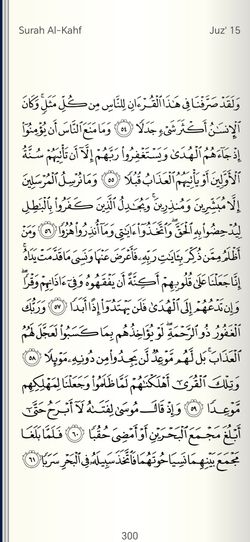 Surah Al-Kahf Juz' 15
وَلَقَدْ صَرَّفْنَا فِى هَٰذَا ٱلْقُرْءَانِ لِلنَّاسِ مِن كُلِّ مَثَلٍ ۚ وَكَانَ
ٱلْإِنسَٰنُ أَكْثَرَ شَىْءٍ جَدَلًا ٥٤ وَمَا مَنَعَ ٱلنَّاسَ أَن يُؤْمِنُوٓا۟
إِذْ جَآءَهُمُ ٱلْهُدَىٰ وَيَسْتَغْفِرُوا۟ رَبَّهُمْ إِلَّآ أَن تَأْتِيَهُمْ سُنَّةُ
ٱلْأَوَّلِينَ أَوْ يَأْتِيَهُمُ ٱلْعَذَابُ قُبُلًا ٥٥ وَمَا نُرْسِلُ ٱلْمُرْسَلِينَ
إِلَّا مُبَشِّرِينَ وَمُنذِرِينَ ۚ وَيُجَٰدِلُ ٱلَّذِينَ كَفَرُوا۟ بِٱلْبَٰطِلِ
لِيُدْحِضُوا۟ بِهِ ٱلْحَقَّ ۖ وَٱتَّخَذُوٓا۟ ءَايَٰتِى وَمَآ أُنذِرُوا۟ هُزُوًا ٥٦ وَمَنْ
أَظْلَمُ مِمَّن ذُكِّرَ بِـَٔايَٰتِ رَبِّهِۦ فَأَعْرَضَ عَنْهَا وَنَسِىَ مَا قَدَّمَتْ يَدَاهُ ۚ
إِنَّا جَعَلْنَا عَلَىٰ قُلُوبِهِمْ أَكِنَّةً أَن يَفْقَهُوهُ وَفِىٓ ءَاذَانِهِمْ وَقْرًا ۖ
وَإِن تَدْعُهُمْ إِلَى ٱلْهُدَىٰ فَلَن يَهْتَدُوٓا۟ إِذًا أَبَدًا ٥٧ وَرَبُّكَ
ٱلْغَفُورُ ذُو ٱلرَّحْمَةِ ۖ لَوْ يُؤَاخِذُهُم بِمَا كَسَبُوا۟ لَعَجَّلَ لَهُمُ
ٱلْعَذَابَ ۚ بَل لَّهُم مَّوْعِدٌ لَّن يَجِدُوا۟ مِن دُونِهِۦ مَوْئِلًا ٥٨
وَتِلْكَ ٱلْقُرَىٰٓ أَهْلَكْنَٰهُمْ لَمَّا ظَلَمُوا۟ وَجَعَلْنَا لِمَهْلِكِهِم
مَّوْعِدًا ٥٩ وَإِذْ قَالَ مُوسَىٰ لِفَتَىٰهُ لَآ أَبْرَحُ حَتَّىٰٓ
أَبْلُغَ مَجْمَعَ ٱلْبَحْرَيْنِ أَوْ أَمْضِىَ حُقُبًا ٦٠ فَلَمَّا بَلَغَا
مَجْمَعَ بَيْنِهِمَا نَسِيَا حُوتَهُمَا فَٱتَّخَذَ سَبِيلَهُۥ فِى ٱلْبَحْرِ سَرَبًا ٦١
300